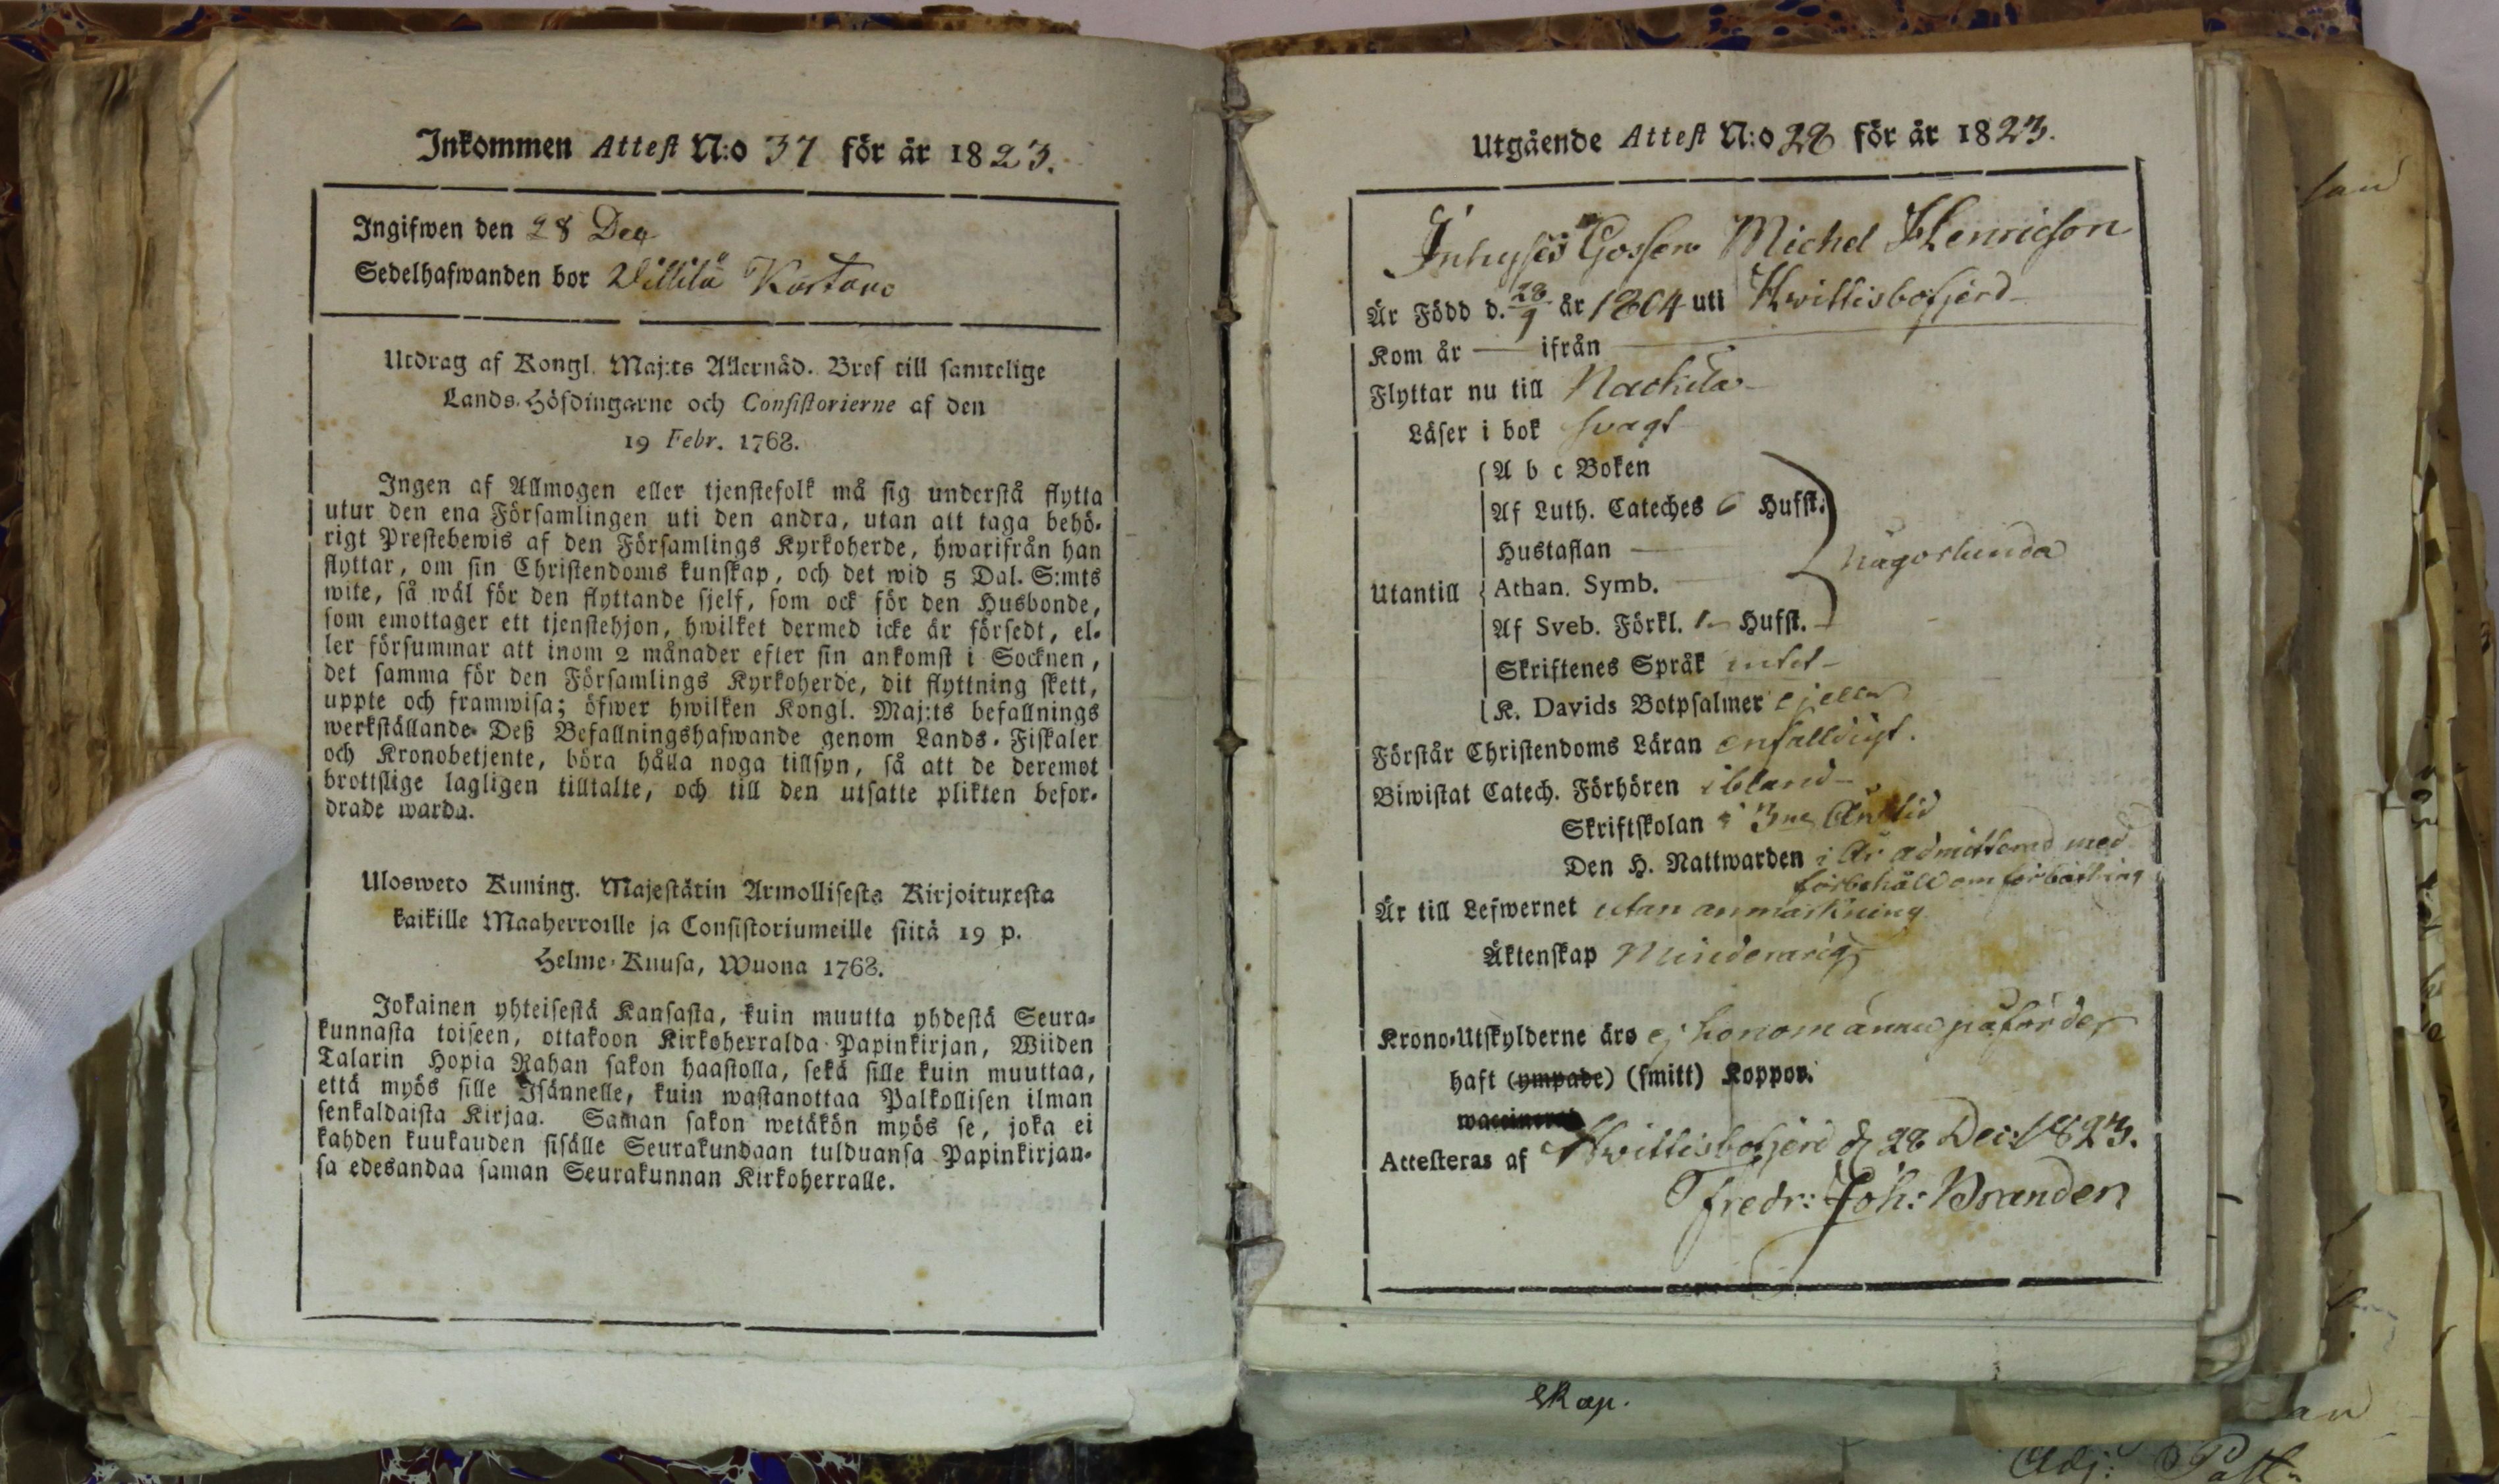 Inkommen Attest N:o 37 för år 1823.
Ingifwen den 28 Dec
Sedelhafwanden bor Villilä Kartano
Utdrag af Kongl. Maj:ts Allernåd. Bref till samtelige
Lands-Höfdingarne och Consistorierne af den
19 Febr. 1768.
Ingen af Allmogen eller tjenstefolk må sig understå flytta
utur den ena Församlingen uti den andra, utan att taga behö-
rigt Prestebewis af den Församlings Kyrkoherde, hwarifrån han
flyttar, om sin Christendoms kunskap, och det wid 5 Dal. S:mts
wite, så wäl för den flyttande sjelf, som ock för den Husbonde,
som emottager ett tjenstehjon, hwilket dermed icke är försedt, el-
ler försummar att inom 2 månader efter sin ankomst i Socknen,
det samma för den Församlings Kyrkoherde, dit flyttning skett,
uppte och framwisa; öfwer hwilken Kongl. Maj:ts befallnings
werkställande Deß Befallningshafwande genom Lands-Fiskaler
och Kronobetjente, böra hålla noga tillsyn, så att de deremot
brottslige lagligen tilltalte, och till den utsatte plikten befor-
drade warda.
Ulosweto Kuning. Majestätin Armollisesta Kirjoituxesta
kaikille Maaherroille ja Consistoriumeille siitä 19 p.
Helme-Kuusa, Wuona 1768.
Jokainen yhteisestä Kansasta, kuin muutta yhdestä Seura-
kunnasta toiseen, ottakoon Kirkoherralda Papinkirjan, Wiiden
Talarin Hopia Rahan sakon haastolla, sekä sille kuin muuttaa,
että myös sille Isännelle, kuin wastanottaa Palkollisen ilman
senkaldaista Kirjaa. Saman sakon wetäkön myös se, joka ei
kahden kuukauden sisälle Seurakundaan tulduansa Papinkirjan-
sa edesandaa saman Seurakunnan Kirkoherralle.
Utgående Attest N:o 28 för år 1823.
Inhyses Gossen Michel Henricson
Är Född d. 28/9 år 1804 uti Hwittisbofjerd
Kom år — ifrån —
Flyttar nu till Nackila
Läser i bok svagt
A b c Boken
Af Luth. Cateches 6 Hufst.
Hustaflan —
någorlunda
Utantill Athan. Symb.
Af Sveb. Förkl. 1 Hufst.
Skriftenes Språk intet
K. Davids Botpsalmer ejeller
Förstår Christendoms Läran enfalldigt.
Biwistat Catech. Förhören ibland
Skriftskolan i 3ne Års tid
Den H. Nattwarden i År admitterad med
förbehåld om förbättring
Är till Lefwernet utan anmärkning
Äktenskap Minderårig
Krono-Utskylderne äro ej honom ännu påförde
haft (ympade) (smitt) Koppor.
waccinerad
Attesteras af Hwittisbofjerd d. 28 Dec: 1823.
Fredr: Joh: Branden
skap.
Adj: